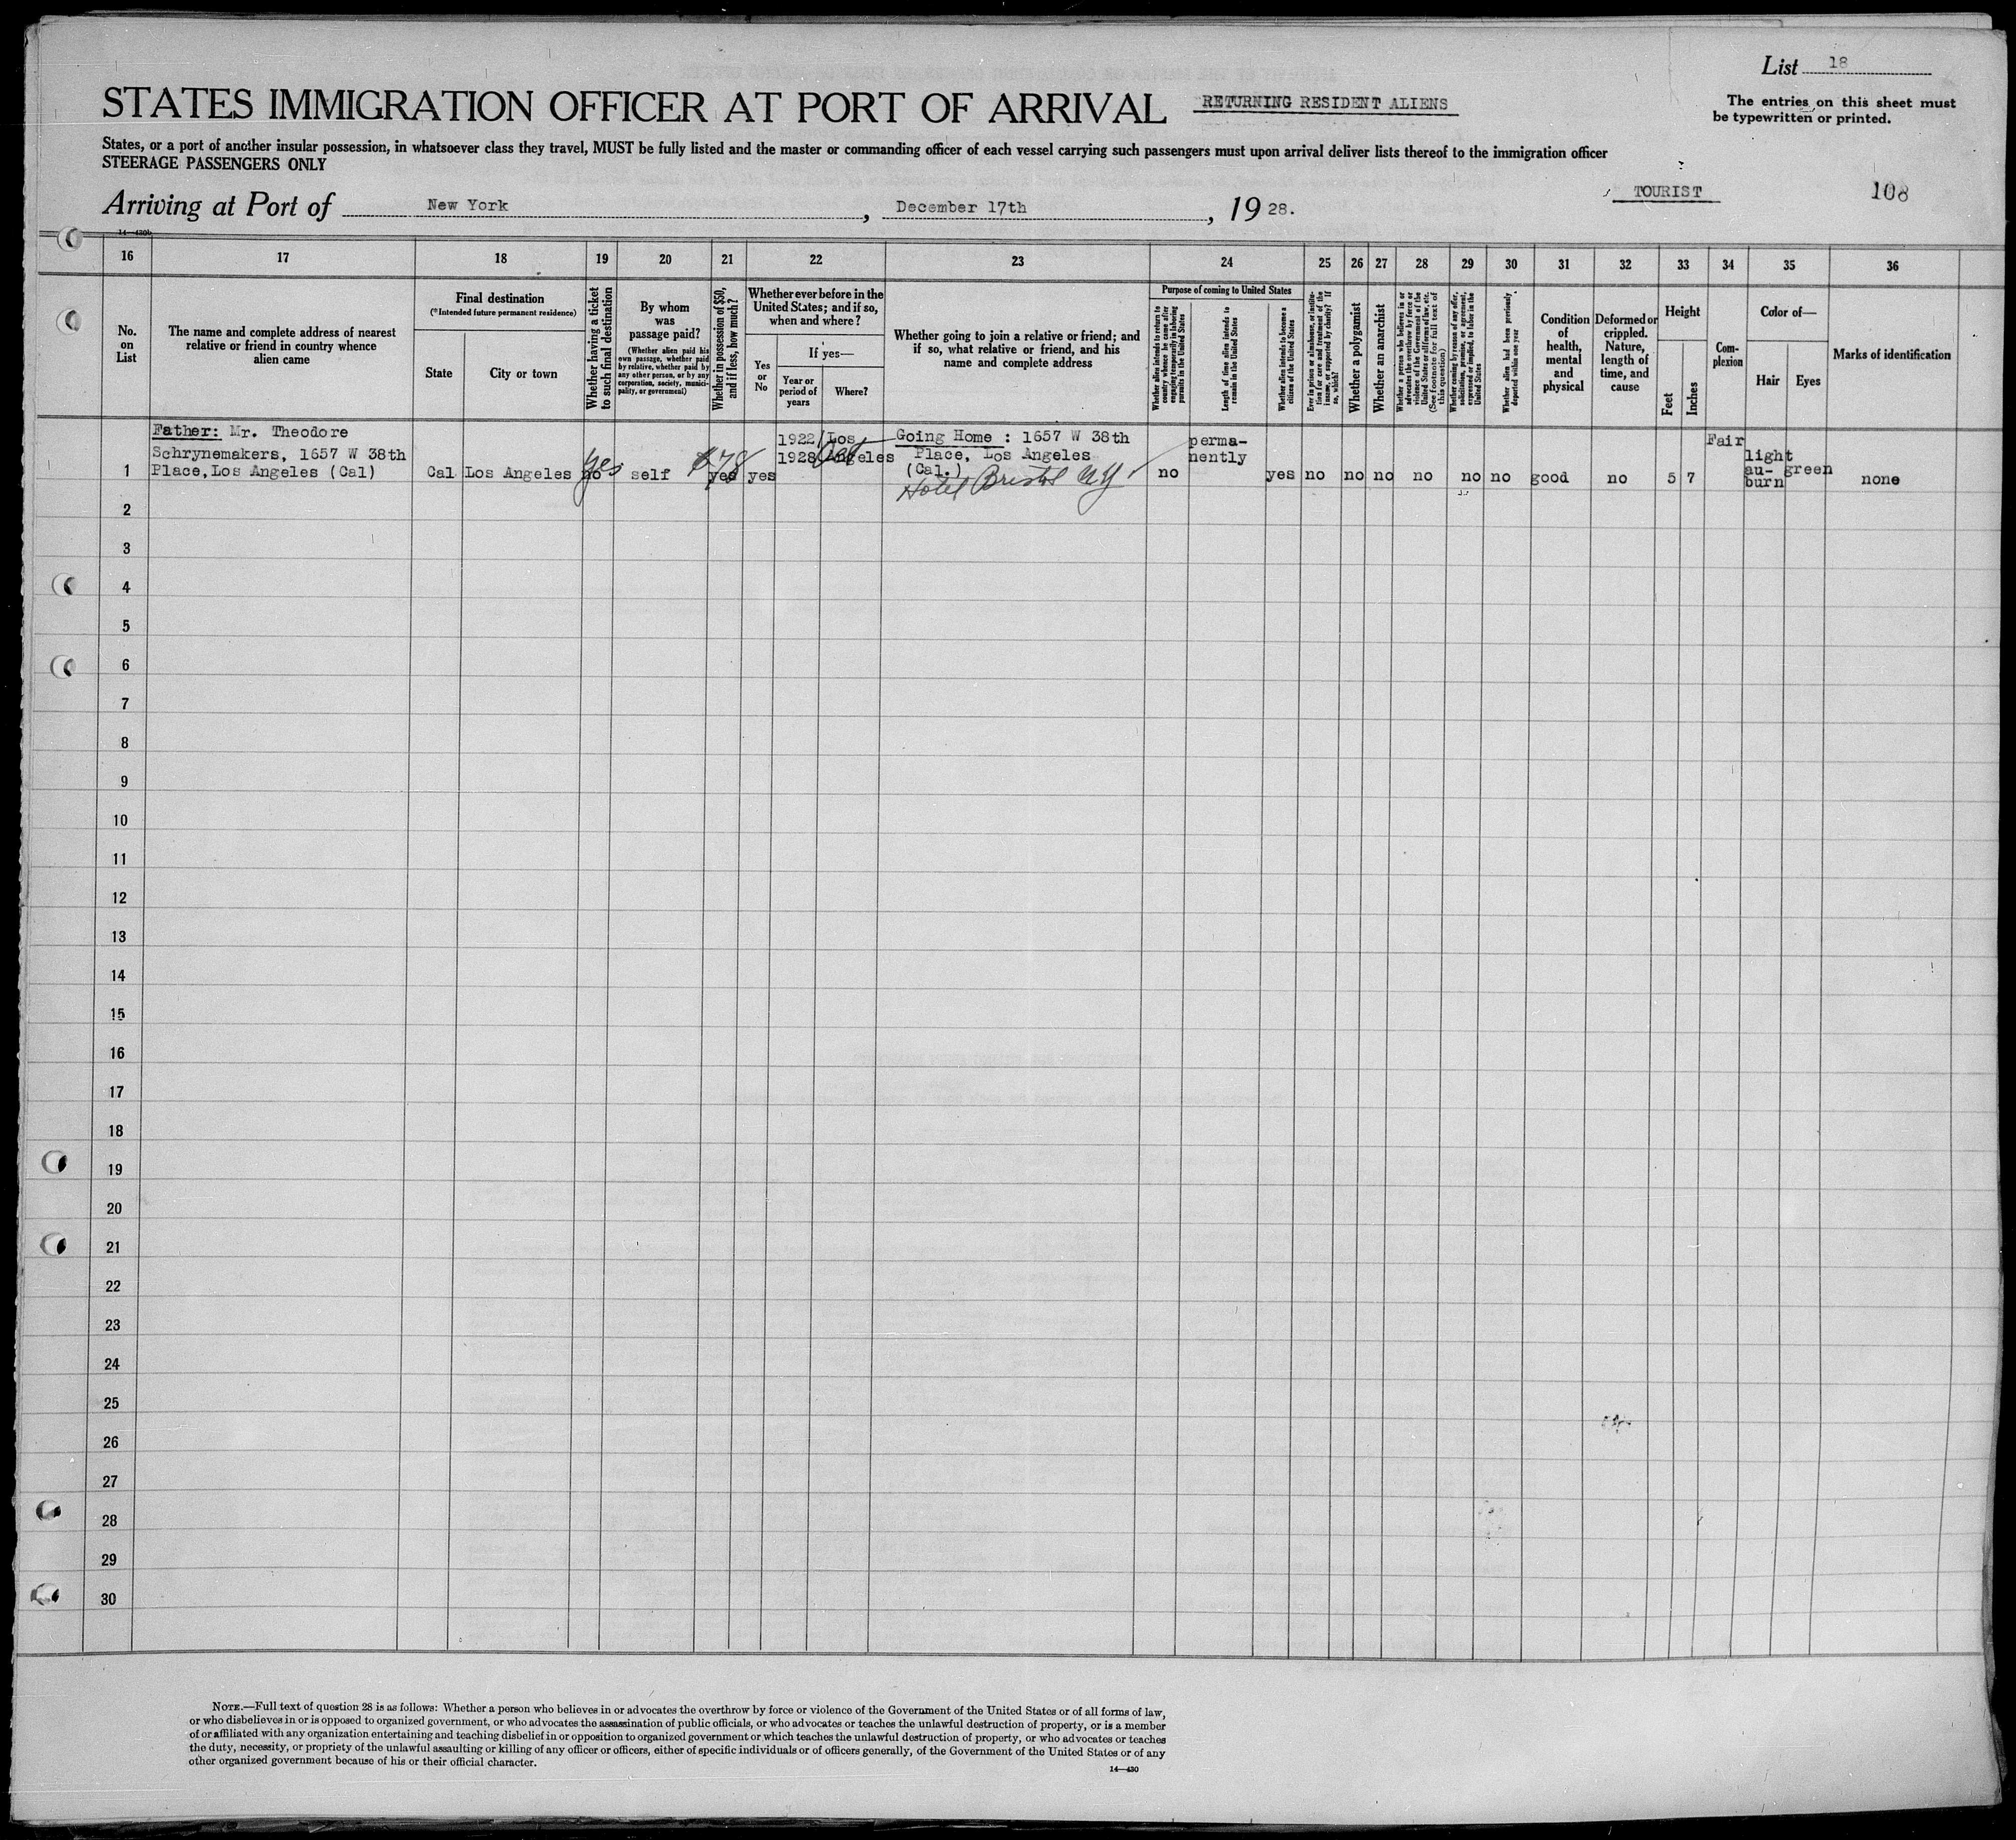 List 18
STATES IMMIGRATION OFFICER AT PORT OF ARRIVAL
RETURNING RESIDENT ALIENS
The entries on this sheet must
be typewritten or printed.
States, or a port of another insular possession, in whatsoever class they travel, MUST be fully listed and the master or commanding officer of each vessel carrying such passengers must upon arrival deliver lists thereof to the immigration officer
STEERAGE PASSENGERS ONLY
TOURIST
108
Arriving at Port of New York, December 17th, 1928.
14—430b
16 17 18 19 20 21 22 23 24 25 26 27 28 29 30 31 32 33 34 35 36
No.
on
List
The name and complete address of nearest
relative or friend in country whence
alien came
Final destination
(*Intended future permanent residence)
State
City or town
Whether having a ticket
to such final destination
By whom
was
passage paid?
(Whether alien paid his
own passage, whether paid
by relative, whether paid by
any other person, or by any
corporation, society, munici-
pality, or government)
Whether in possession of $50,
and if less, how much?
Whether ever before in the
United States; and if so,
when and where?
Yes
or
No
If yes—
Year or
period of
years
Where?
Whether going to join a relative or friend; and
if so, what relative or friend, and his
name and complete address
Purpose of coming to United States
Whether alien intends to return to
country whence he came after
engaging temporarily in laboring
pursuits in the United States
Length of time alien intends to
remain in the United States
Whether alien intends to become a
citizen of the United States
Ever in prison or almshouse, or institu-
tion for care and treatment of the
insane, or supported by charity? If
so, which?
Whether a polygamist
Whether an anarchist
Whether a person who believes in or
advocates the overthrow by force or
violence of the Government of the
United States or all forms of law, etc.
(See footnote for full text of
this question)
Whether coming by reason of any offer,
solicitation, promise, or agreement,
expressed or implied, to labor in the
United States
Whether alien had been previously
deported within one year
Condition
of
health,
mental
and
physical
Deformed or
crippled.
Nature,
length of
time, and
cause
Height
Feet
Inches
Com-
plexion
Color of—
Hair
Eyes
Marks of identification
Father: Mr. Theodore
Schrynemakers, 1657 W 38th
Place, Los Angeles (Cal)
1
Cal
Los Angeles
no
yes
self
yes
$78
yes
1922/
1928
Los
Angeles
Going Home : 1657 W 38th
Place, Los Angeles
(Cal.)
Hotel Bristol NY
no
perma-
nently
yes
no
no
no
no
no
no
good
no
5
7
Fair
light
au-
burn
green
none
2
3
4
5
6
7
8
9
10
11
12
13
14
15
16
17
18
19
20
21
22
23
24
25
26
27
28
29
30
NOTE.—Full text of question 28 is as follows: Whether a person who believes in or advocates the overthrow by force or violence of the Government of the United States or of all forms of law,
or who disbelieves in or is opposed to organized government, or who advocates the assassination of public officials, or who advocates or teaches the unlawful destruction of property, or is a member
of or affiliated with any organization entertaining and teaching disbelief in or opposition to organized government or which teaches the unlawful destruction of property, or who advocates or teaches
the duty, necessity, or propriety of the unlawful assaulting or killing of any officer or officers, either of specific individuals or of officers generally, of the Government of the United States or of any
other organized government because of his or their official character.
14—430